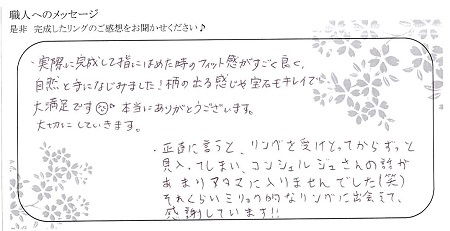 職人へのメッセージ
是非 完成したリングのご感想をお聞かせください♪
・実際に完成して指にはめた時のフィット感がすごく良く、
自然と手になじみました！柄の出る感じや宝石もキレイで
大満足です 本当にありがとうございます。
大切にしていきます。
・正直に言うと、リングを受けとってからずっと
見入ってしまい、コンシェルジュさんの話が
あまりアタマに入りませんでした(笑)
それくらいミリョク的なリングに出会えて、
感謝しています!!